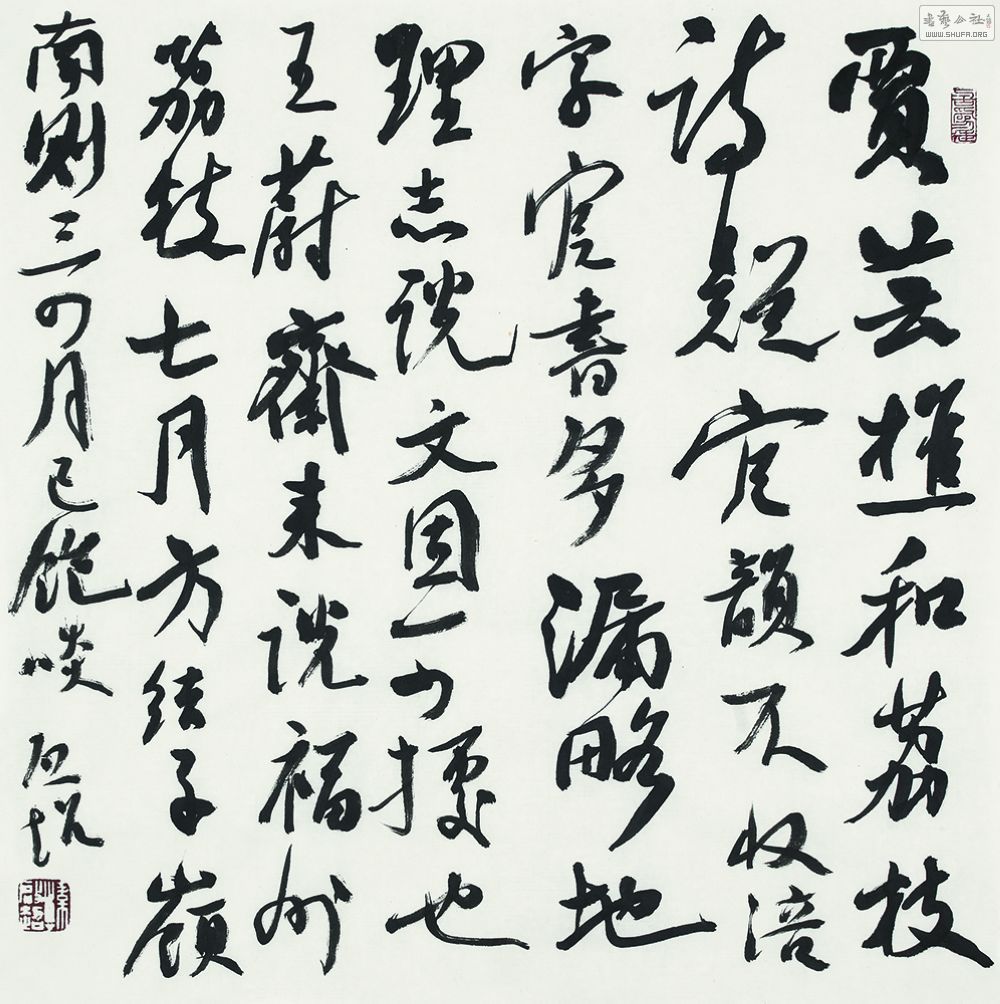 賈芸樵和荔枝
詩疑官韻不收涪
字官書多漏略地
理志說文固可據也
王蔚齋來說福州
荔枝七月方結子嶺
南則三四月已飽啖
書藝公社
WWW.SHUFA.ORG